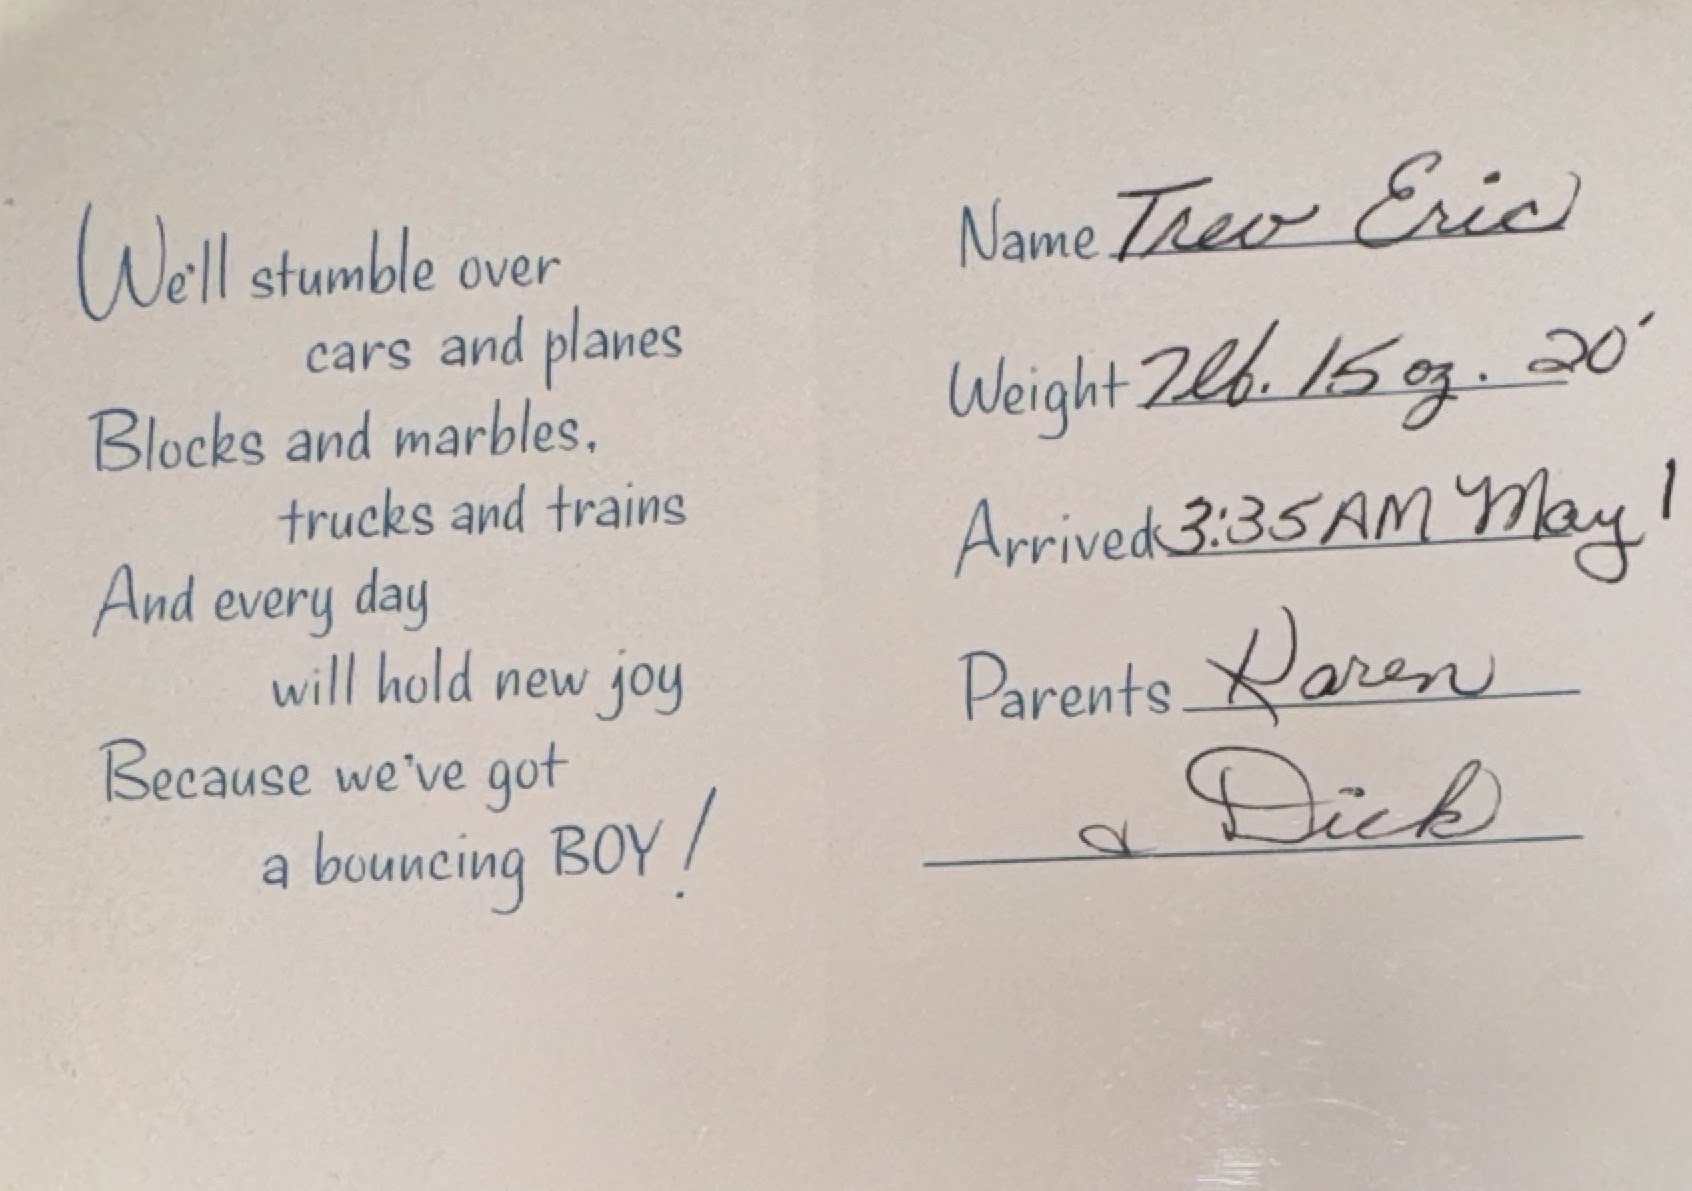 We'll stumble over
cars and planes
Blocks and marbles,
trucks and trains
And every day
will hold new joy
Because we've got
a bouncing BOY!
Name Trev Eric
Weight 7lb. 15 oz. 20'
Arrived 3:35 AM May 1
Parents Karen
& Dick